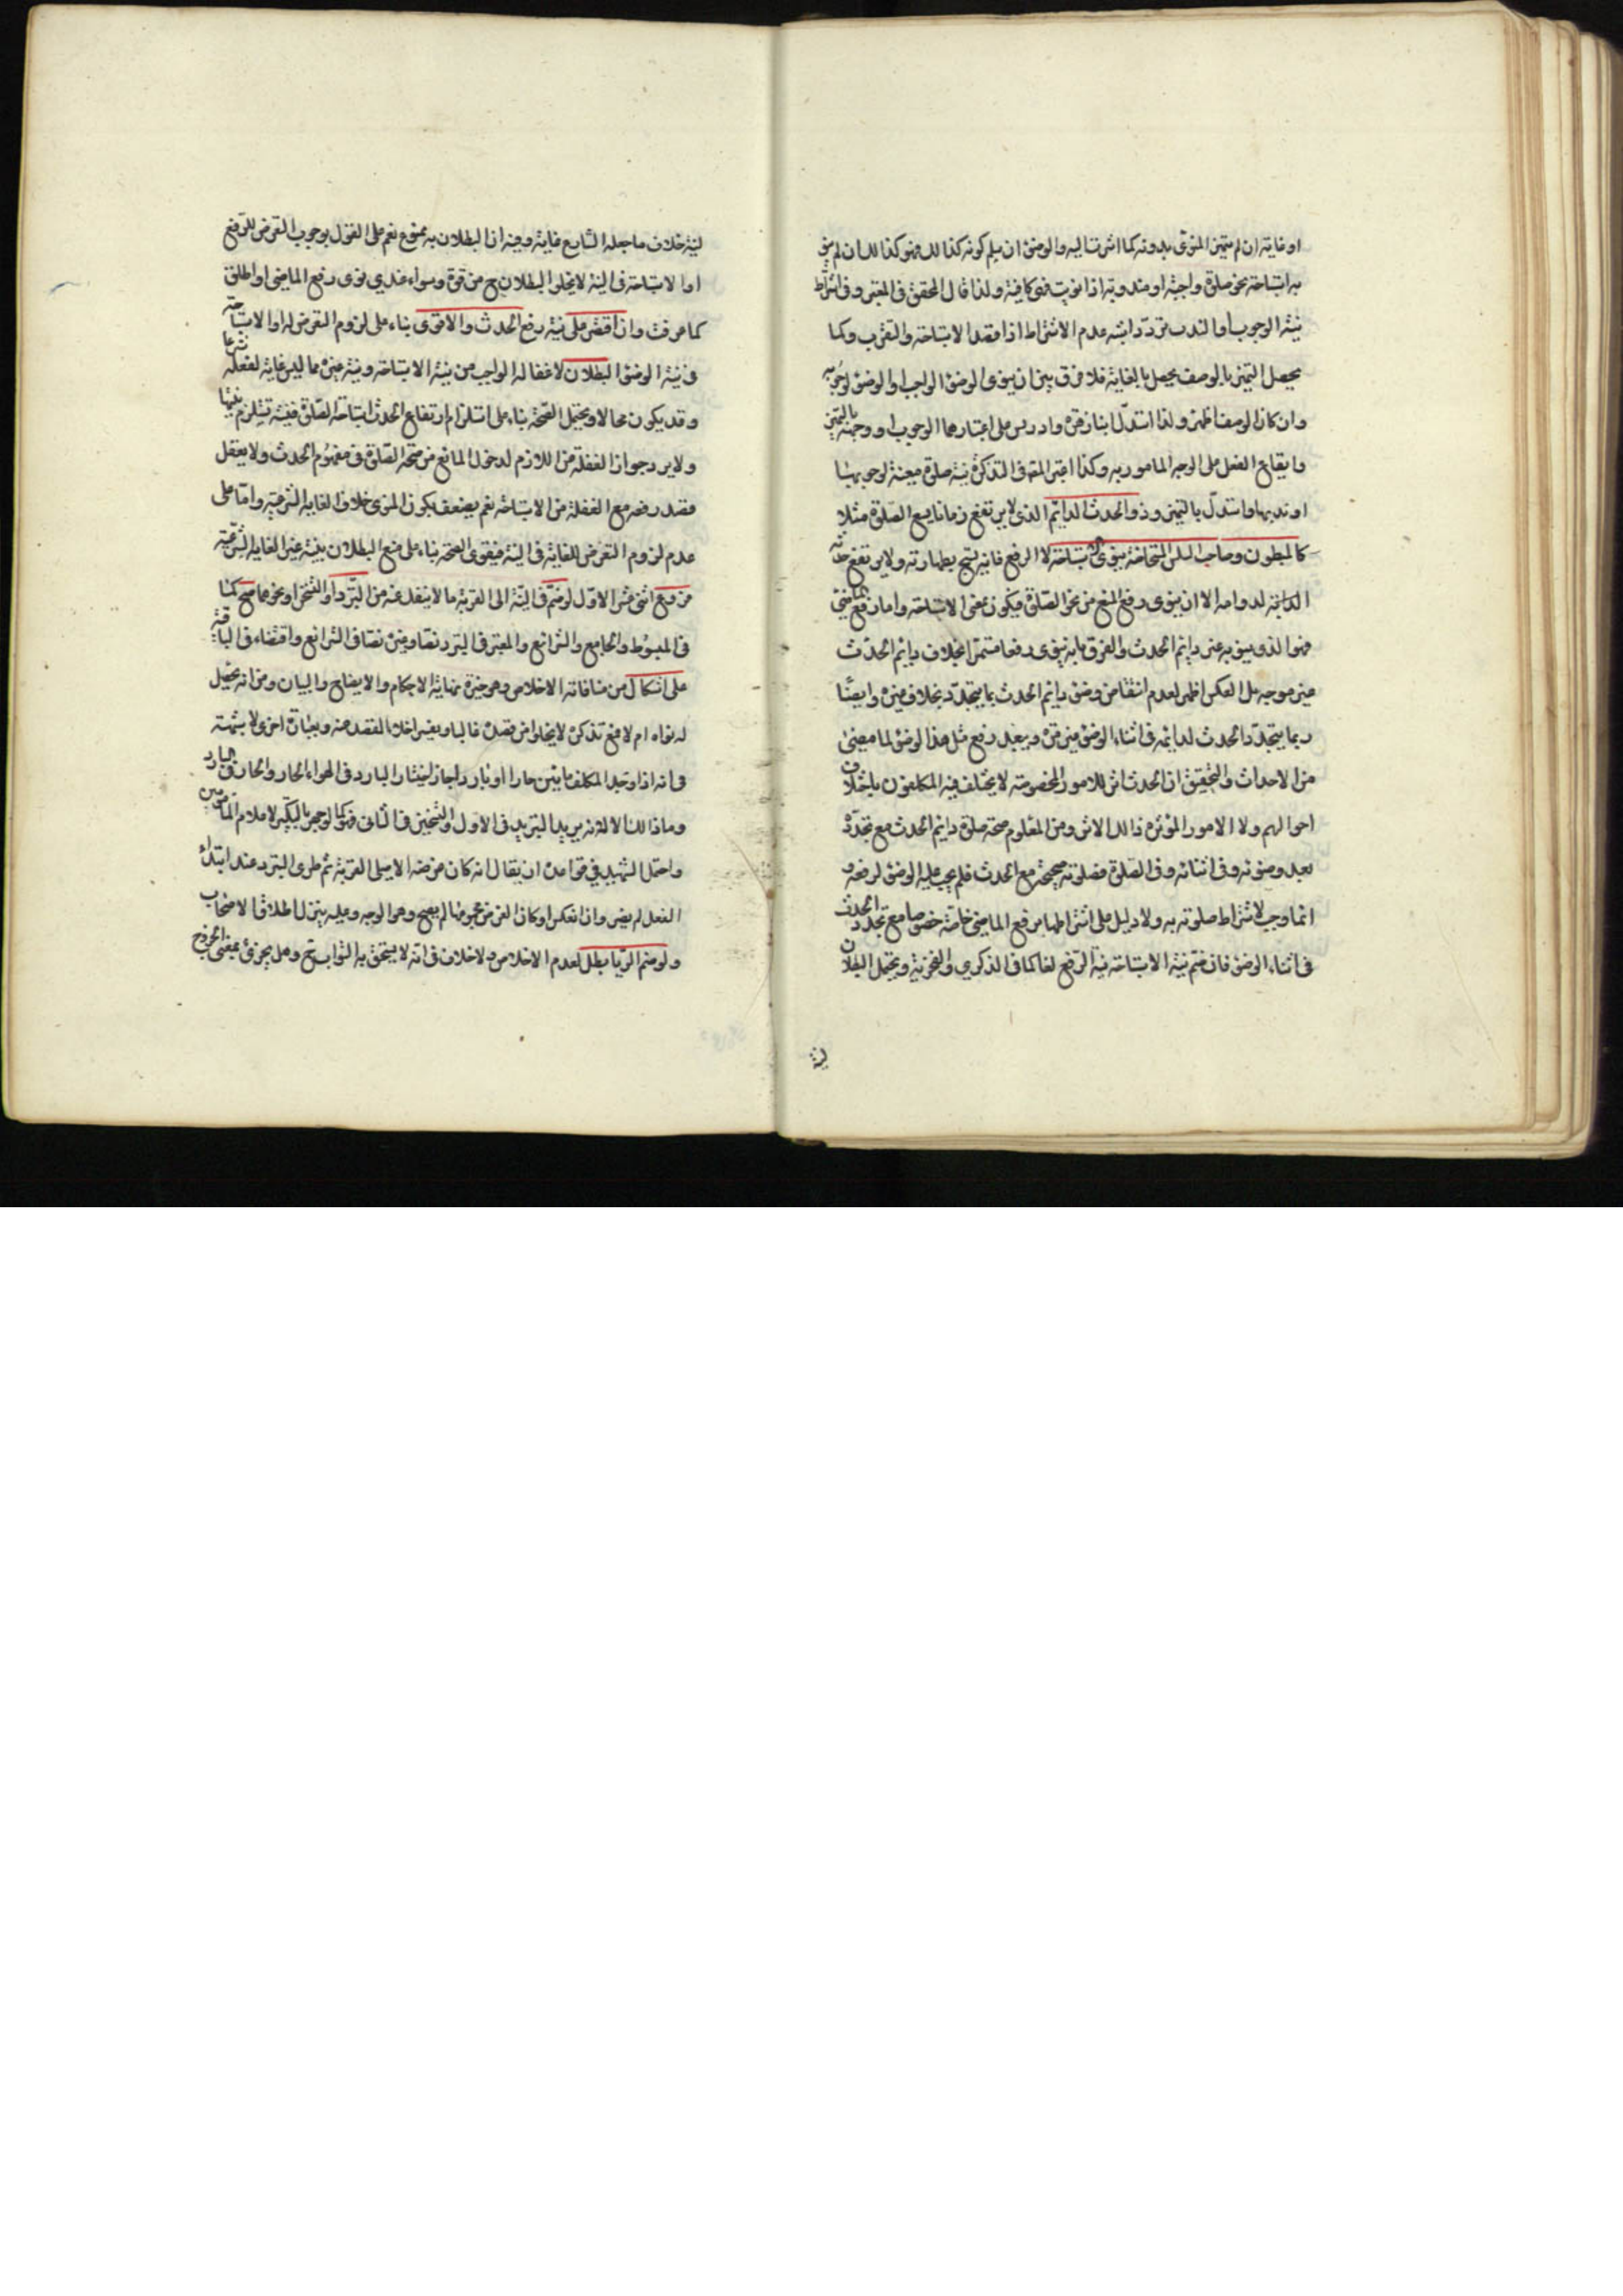 او غايته ان لم يتميز المنوى بدونه كما اشرنا اليه والوضوء ان علم كونه كذلك فهو كذلك ان لم ينو
به استباحة نحو صلوة واجبة او مندوبة اذا نويت فهى كافية ولذا قال المحقق فى المعتبر وفى اشتراط
نية الوجوب او الندب تردد اشبه عدم الاشتراط اذا قصد الاستباحة والتقرب وكما
يحصل التميز بالوصف يحصل بالغاية فلا فرق بين ان ينوى الوضوء الواجب او الوضوء لوجوبه
وان كان الوصف اظهر ولذا استدل ابنا زهرة وادريس على اعتبارهما الوجوب او وجهه بالتميز
وايقاع الفعل على الوجه المامور به وكذا اعتبر المصنف فى التذكرة نية صلوة معينة لوجوبها
او ندبها واستدل بالتميز وذو الحدث الدائم الذى لا يرتفع زمانا يسع الصلوة مثلا
كالمبطون وصاحب السلس والمستحاضة ينوى الاستباحة لا الرفع فانه يستبيح بطهارته ولا يرتفع حدثه
الدائم لدوامه الا ان ينوى رفع المنع من نحو الصلوة فيكون بمعنى الاستباحة واما رفع الماضى
فهو الذى ينويه غير دائم الحدث والفرق بانه ينوى رفعا مستمرا بخلاف دائم الحدث
غير موجه بل العكس اظهر لعدم انتقاض وضوء دائم الحدث بما يتجدد بخلاف غيره وايضا
ربما يتجدد الحدث لدائمه فى اثناء الوضوء غير مرة ويبعد رفع مثل هذا الوضوء لما مضى
من الاحداث والتحقيق ان الحدث اثر للامور المخصوصة لا يختلف فيه المكلفون باختلاف
احوالهم ولا الامور المؤثرة ذلك الاثر ومن المعلوم صحة صلوة دائم الحدث مع تجدده
بعد وضوئه وفى اثنائه وفى الصلوة فصلوته صحيحة مع الحدث فلم يجب عليه الوضوء لرفعه و
انما وجب لاشتراط صلوته به ولا دليل على اشتراطها برفع الماضى خاصة خصوصا مع تجدد الحدث
فى اثناء الوضوء فان ضم نية الاستباحة نية الرفع لغا كما فى الذكرى والفخرية ويحتمل البطلان
لنية
لنية خلاف ما جعله الشارع غاية وفيه ان البطلان به ممنوع نعم على القول بوجوب التعرض للرفع
او الاستباحة فى النية لا يخلو البطلان ح من قوة وسواء عندي نوى رفع الماضى او اطلق
كما عرفت وان اقتصر على نية رفع الحدث والاقوى بناء على لزوم التعرض له او الاستباحة
فى نية الوضوء البطلان لاغفاله الواجب من نية الاستباحة ونية غيره مما ليس غاية لفعله شرعا
وقد يكون محالا ويحتمل الصحة بناء على استلزام ارتفاع الحدث استباحة الصلوة فنيته تستلزم نيتها
ولا يرد جواز الغفلة من اللازم لدخول المانع من صحة الصلوة فى مفهوم الحدث ولا يعقل
قصد رفعه مع الغفلة من الاستباحة نعم يضعف بكون المنوى خلاف الغاية الشرعية واما على
عدم لزوم التعرض للغاية فى النية فيقوى الصحة بناء على منع البطلان بنية غير الغاية الشرعية
فروع اثنى عشر الاول لو ضم فى النية الى القربة ما لا ينفك عنه من التبرد او التسخن او نحوهما صح كما
فى المبسوط والجامع والشرائع والمعتبر فى التبرد نصا وغيره نصا فى الشرائع واقتضاء فى الباقية
على اشكال من منافاته الاخلاص وهو خيرة نهاية الاحكام والايضاح والبيان ومن انه يحصل
له نواه ام لا فمع تذكره لا يخلوا من قصده غالبا ويعسر اخلاء القصد منه وبعبارة اخرى لا شبهة
فى انه اذا وجد المكلف ماءين حارا او باردا جاز ايثار البارد فى الهواء الحار والحار فى البارد
وما ذلك الا لانه يريد التبريد فى الاول والتسخين فى الثانى فهو كما لو جهر بالتكبير لاعلام المامومين
واحتمل الشهيد في قواعده ان يقال ان كان غرضه الاصلى القربة ثم طرى التبرد عند ابتداء
الفعل لم يضر وان انعكس او كان الغرض مجموعهما لم يصح وهو الوجه وعليه ينزل اطلاق الاصحاب
ولو ضم الريا بطل لعدم الاخلاص ولا خلاف فى انه لا يستحق به الثواب ح وهل يجزئ بمعنى الخروج